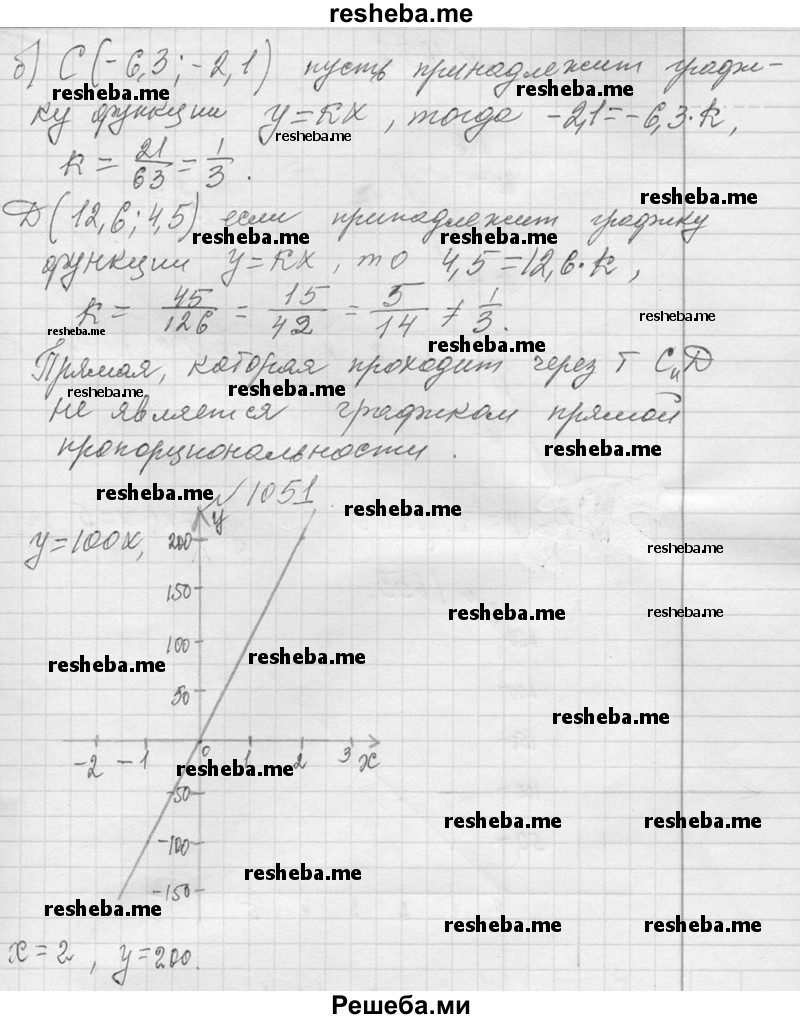 resheba.me
б) С(-6,3; -2,1) пусть принадлежит графи-
resheba.me resheba.me
ку функции y=кx, тогда -2,1=-6,3·k,
resheba.me
k = 21/63 = 1/3.
resheba.me
Д(12,6; 4,5) если принадлежит графику
resheba.me resheba.me
функции y=кx, то 4,5=12,6·k,
k = 45/126 = 15/42 = 5/14 ≠ 1/3.
resheba.me resheba.me
resheba.me
Прямая, которая проходит через т С и Д
resheba.me resheba.me
не является графиком прямой
пропорциональности.
resheba.me
resheba.me
№1051
resheba.me
y=100x,
y
200
resheba.me
150
resheba.me resheba.me
100
resheba.me resheba.me
50
resheba.me
-2 -1 0 1 2 3 x
resheba.me
-50
resheba.me resheba.me
-100
resheba.me
-150
resheba.me
resheba.me resheba.me
x=2, y=200.
Решеба.ми